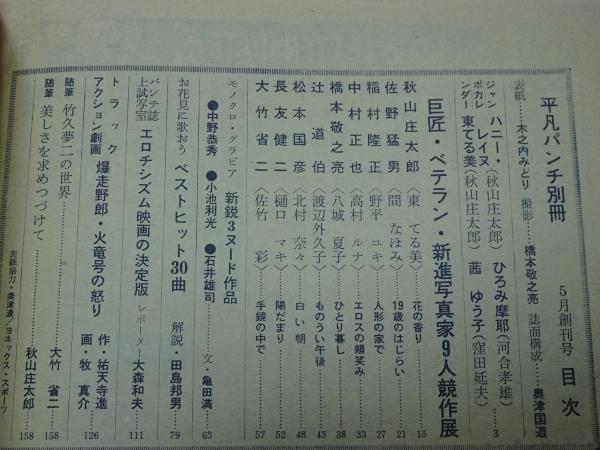 平凡パンチ別冊 5月創刊号 目次
表紙……木之内みどり 撮影……橋本敬之亮 誌面構成……奥津国道
ジャンボカレンダー
ハニー・レイヌ(秋山庄太郎) ひろみ摩耶(河合孝雄)
東てる美(秋山庄太郎) 茜ゆう子(窪田延夫)……3
巨匠・ベテラン・新進写真家9人競作展
秋山庄太郎〈東てる美〉花の香り……15
佐野猛男〈間なほみ〉19歳のはじらい……21
稲村隆正〈野平ユキ〉人形の家で……27
中村正也〈高村ルナ〉エロスの頰笑み……33
橋本敬之亮〈八城夏子〉ひとり暮し……38
辻道伯〈渡辺外久子〉ものうい午後……43
松本国彦〈北村奈々〉白い朝……48
長友健二〈樋口マキ〉陽だまり……52
大竹省二〈佐竹彩〉手鏡の中で……57
モノクロ・グラビア 新鋭3ヌード作品
●中野恭秀 ●小池利光 ●石井雄司……文・亀田満……63
お花見に歌おう ベストヒット30曲 解説・田島邦男……79
パンチ誌上試写室 エロチシズム映画の決定版 レポーター 大森和夫……111
トラックアクション劇画 爆走野郎・火竜号の怒り 作・祐天寺進 画・牧真介……126
随筆 竹久夢二の世界……大竹省二……158
随筆 美しさを求めつづけて……秋山庄太郎……158
表紙協力・美津濃/ヨネックス・スポーツ